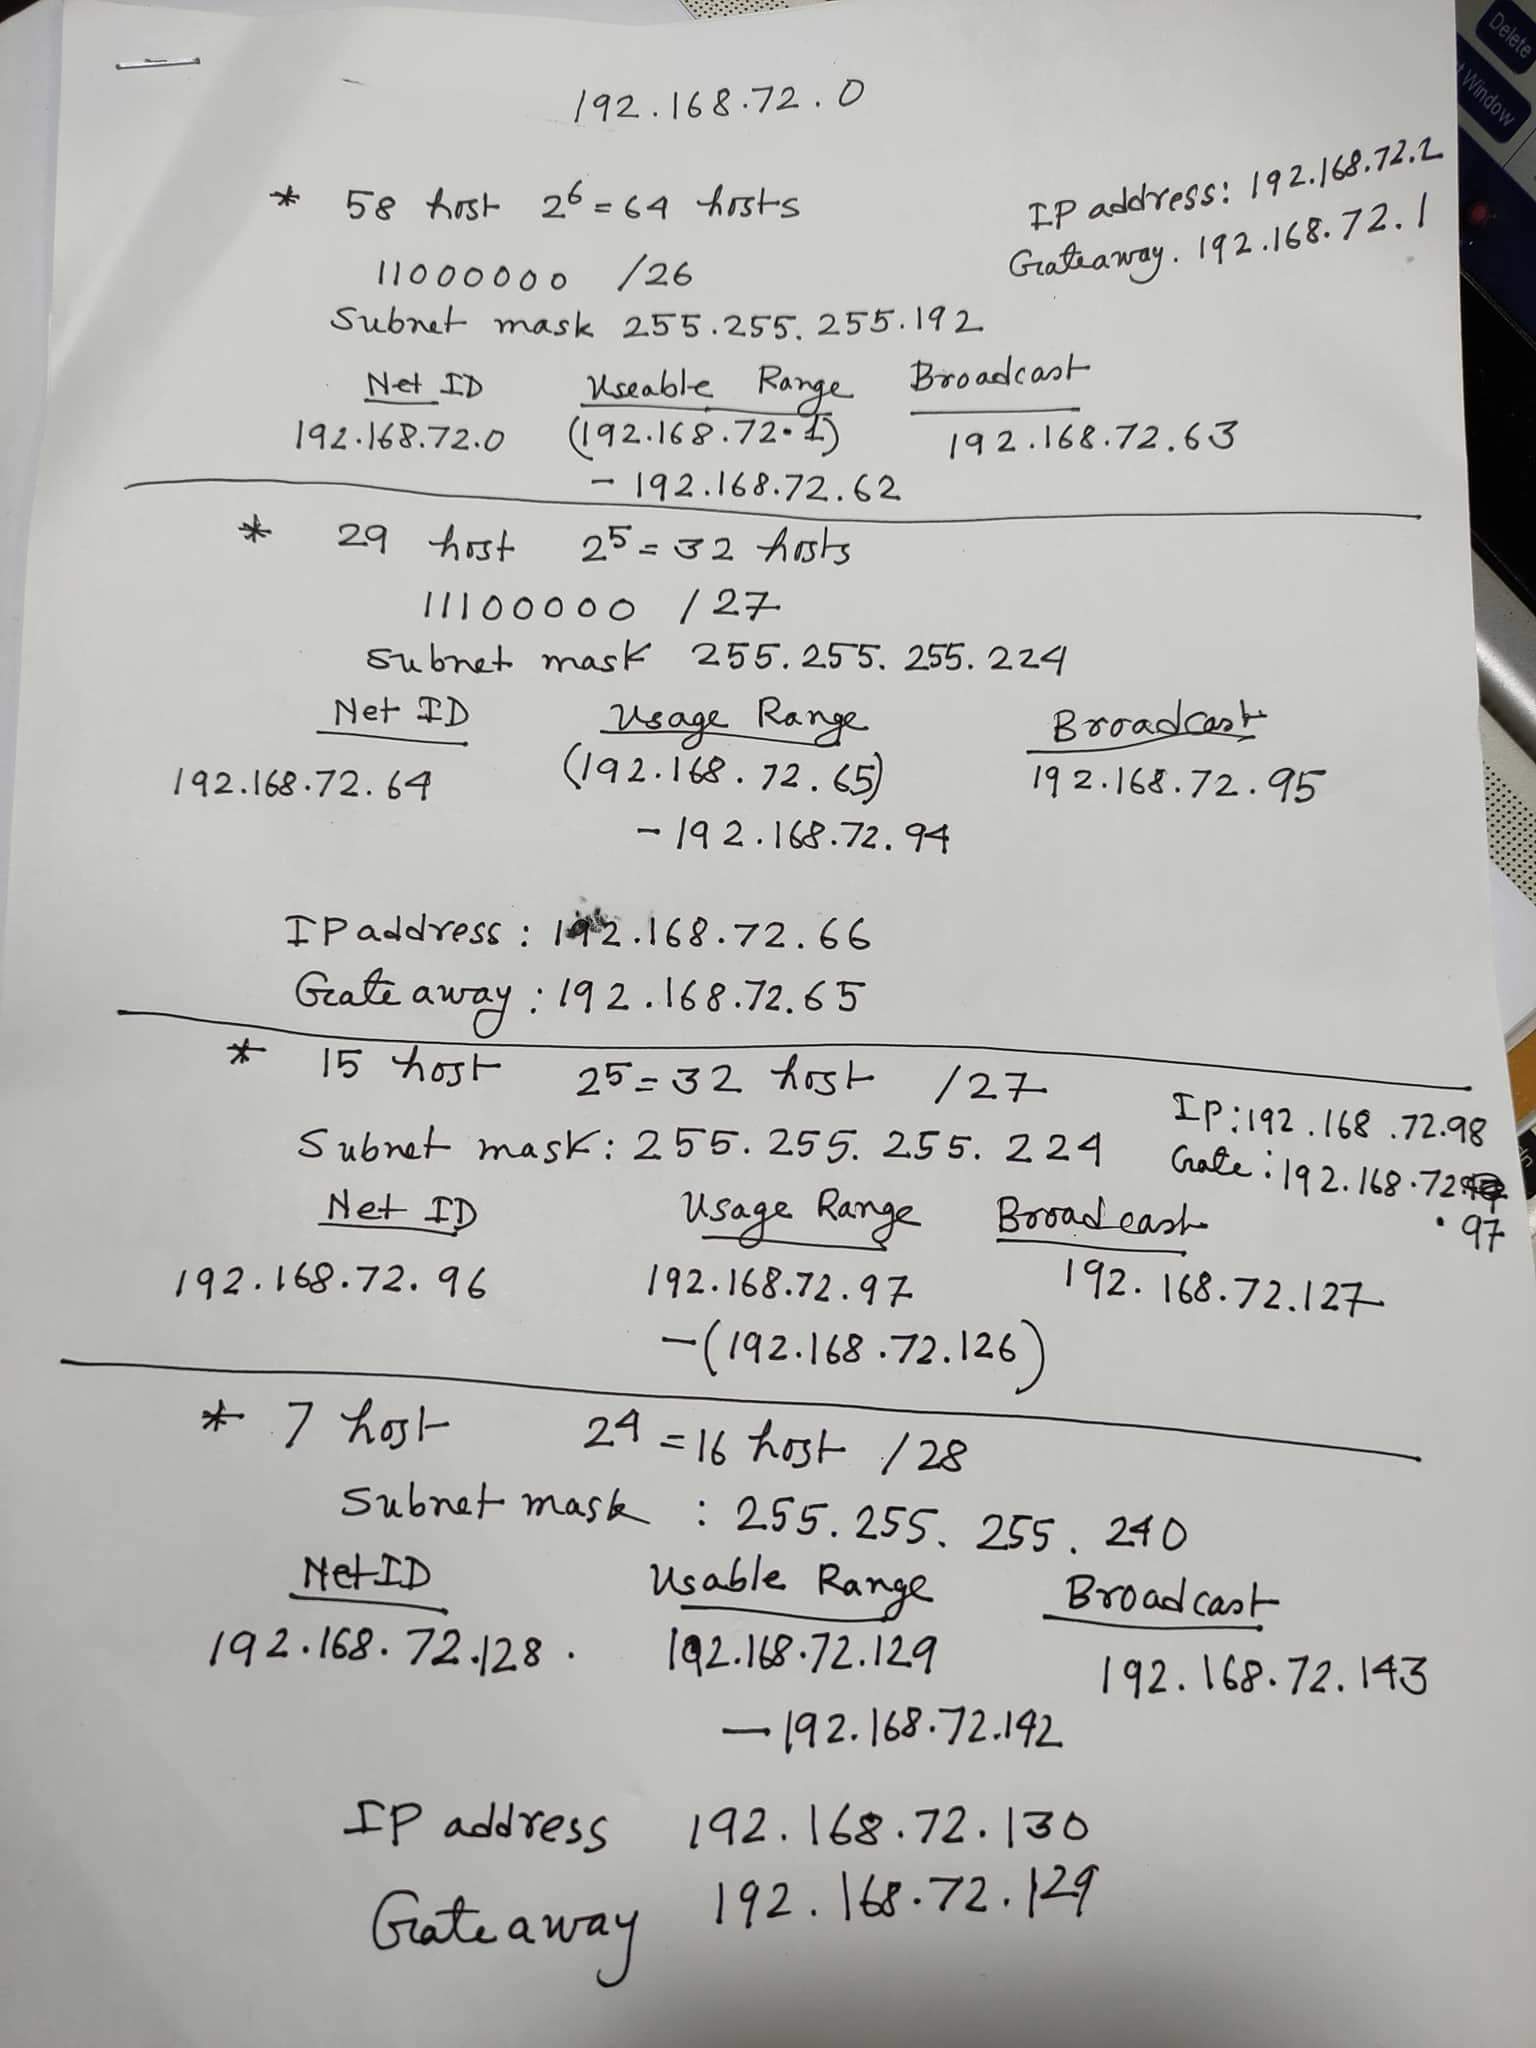 192.168.72.0
* 58 host 2⁶ = 64 hosts
IP address: 192.168.72.2
Gateaway. 192.168.72.1
11000000 /26
Subnet mask 255.255.255.192
Net ID Useable Range Broadcast
192.168.72.0 (192.168.72.1) 192.168.72.63
- 192.168.72.62
* 29 host 2⁵ = 32 hosts
11100000 /27
Subnet mask 255.255.255.224
Net ID Usage Range Broadcast
192.168.72.64 (192.168.72.65) 192.168.72.95
- 192.168.72.94
IP address : 192.168.72.66
Gateaway : 192.168.72.65
* 15 host 2⁵ = 32 host /27
IP: 192.168.72.98
Subnet mask: 255.255.255.224
Gate: 192.168.72
.97
Net ID Usage Range Broadcast
192.168.72.96 192.168.72.97 192.168.72.127
- (192.168.72.126)
* 7 host 2⁴ = 16 host /28
Subnet mask : 255.255.255.240
Net ID Usable Range Broadcast
192.168.72.128. 192.168.72.129 192.168.72.143
- 192.168.72.142
IP address 192.168.72.130
Gateaway 192.168.72.129
Delete
Window